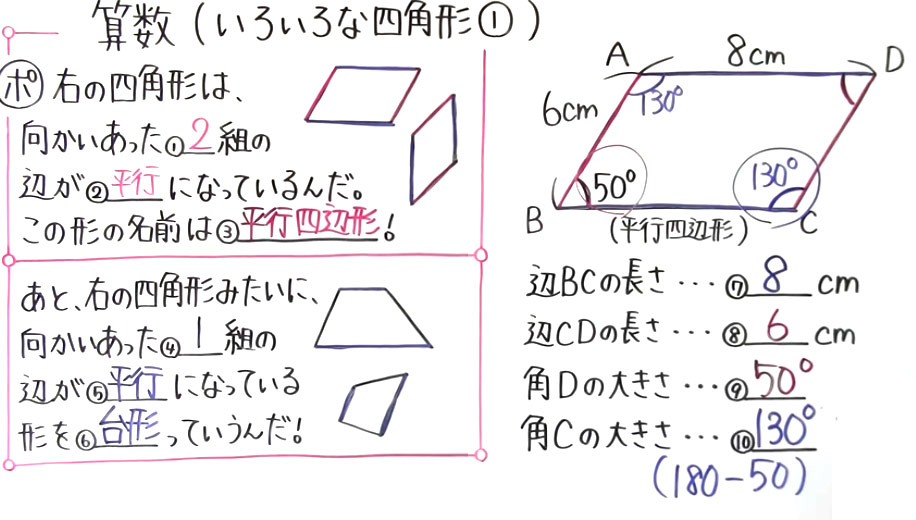 算数(いろいろな四角形①)
ポ 右の四角形は、
向かいあった①2組の
辺が②平行になっているんだ。
この形の名前は③平行四辺形!
あと、右の四角形みたいに、
向かいあった④1組の
辺が⑤平行になっている
形を⑥台形っていうんだ!
A 8cm D
6cm 130°
50° 130°
B C
(平行四辺形)
辺BCの長さ…⑦8cm
辺CDの長さ…⑧6cm
角Dの大きさ…⑨50°
角Cの大きさ…⑩130°
(180-50)